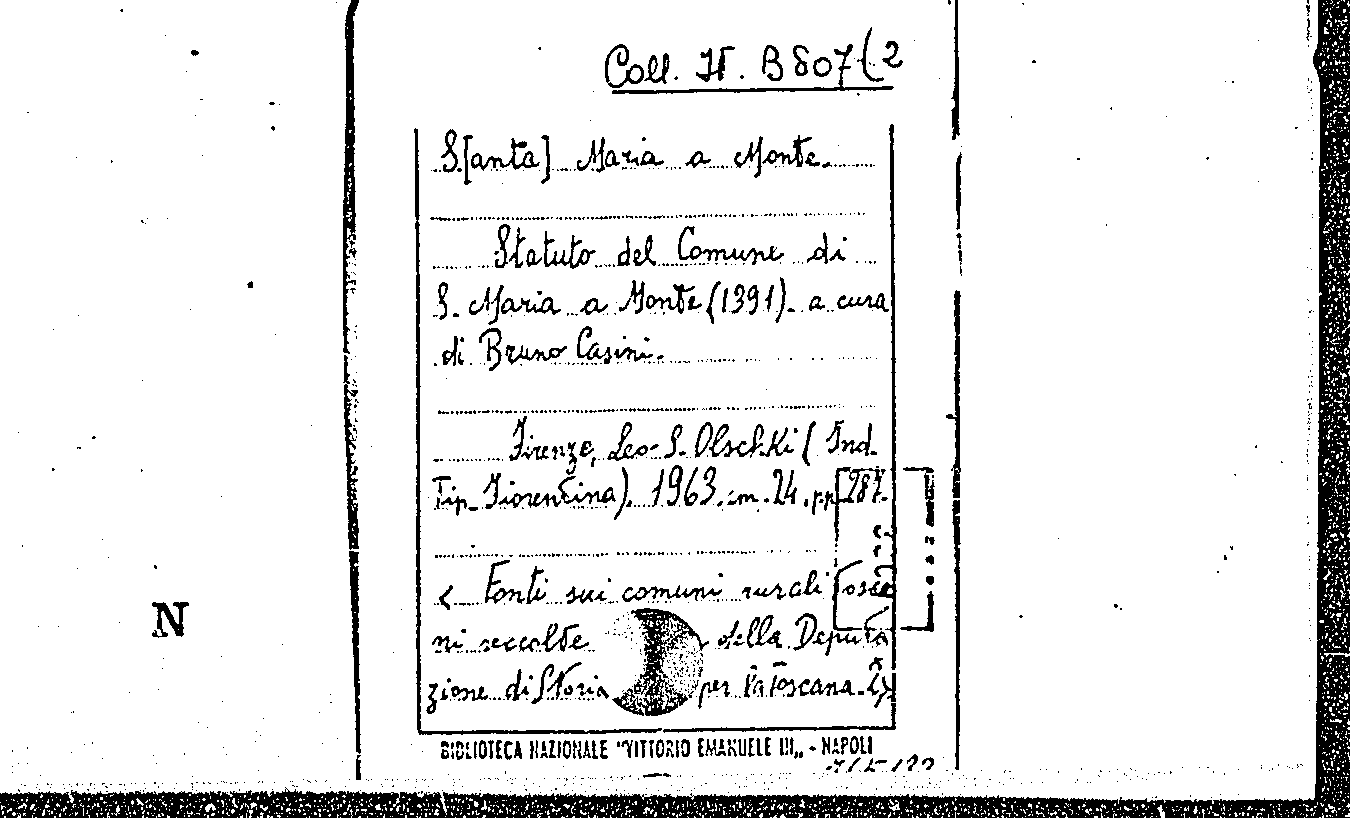 Coll. It. B 807(2
S.[anta] Maria a Monte.
Statuto del Comune di
S. Maria a Monte (1391). a cura
di Bruno Casini.
Firenze, Leo S. Olschki (Ind.
Tip. Fiorentina). 1963. in. 24. pp. 287.
< Fonti sui comuni rurali Tosca
ni raccolte della Deputa
zione di Storia per la Toscana.
BIBLIOTECA NAZIONALE "VITTORIO EMANUELE III„ - NAPOLI
N